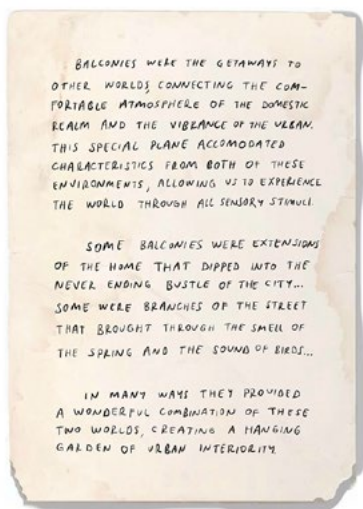 BALCONIES WERE THE GETAWAYS TO
OTHER WORLDS, CONNECTING THE COM-
FORTABLE ATMOSPHERE OF THE DOMESTIC
REALM AND THE VIBRANCE OF THE URBAN.
THIS SPECIAL PLANE ACCOMODATED
CHARACTERISTICS FROM BOTH OF THESE
ENVIRONMENTS, ALLOWING US TO EXPERIENCE
THE WORLD THROUGH ALL SENSORY STIMULI.
SOME BALCONIES WERE EXTENSIONS
OF THE HOME THAT DIPPED INTO THE
NEVER ENDING BUSTLE OF THE CITY...
SOME WERE BRANCHES OF THE STREET
THAT BROUGHT THROUGH THE SMELL OF
THE SPRING AND THE SOUND OF BIRDS...
IN MANY WAYS THEY PROVIDED
A WONDERFUL COMBINATION OF THESE
TWO WORLDS, CREATING A HANGING
GARDEN OF URBAN INTERIORITY.